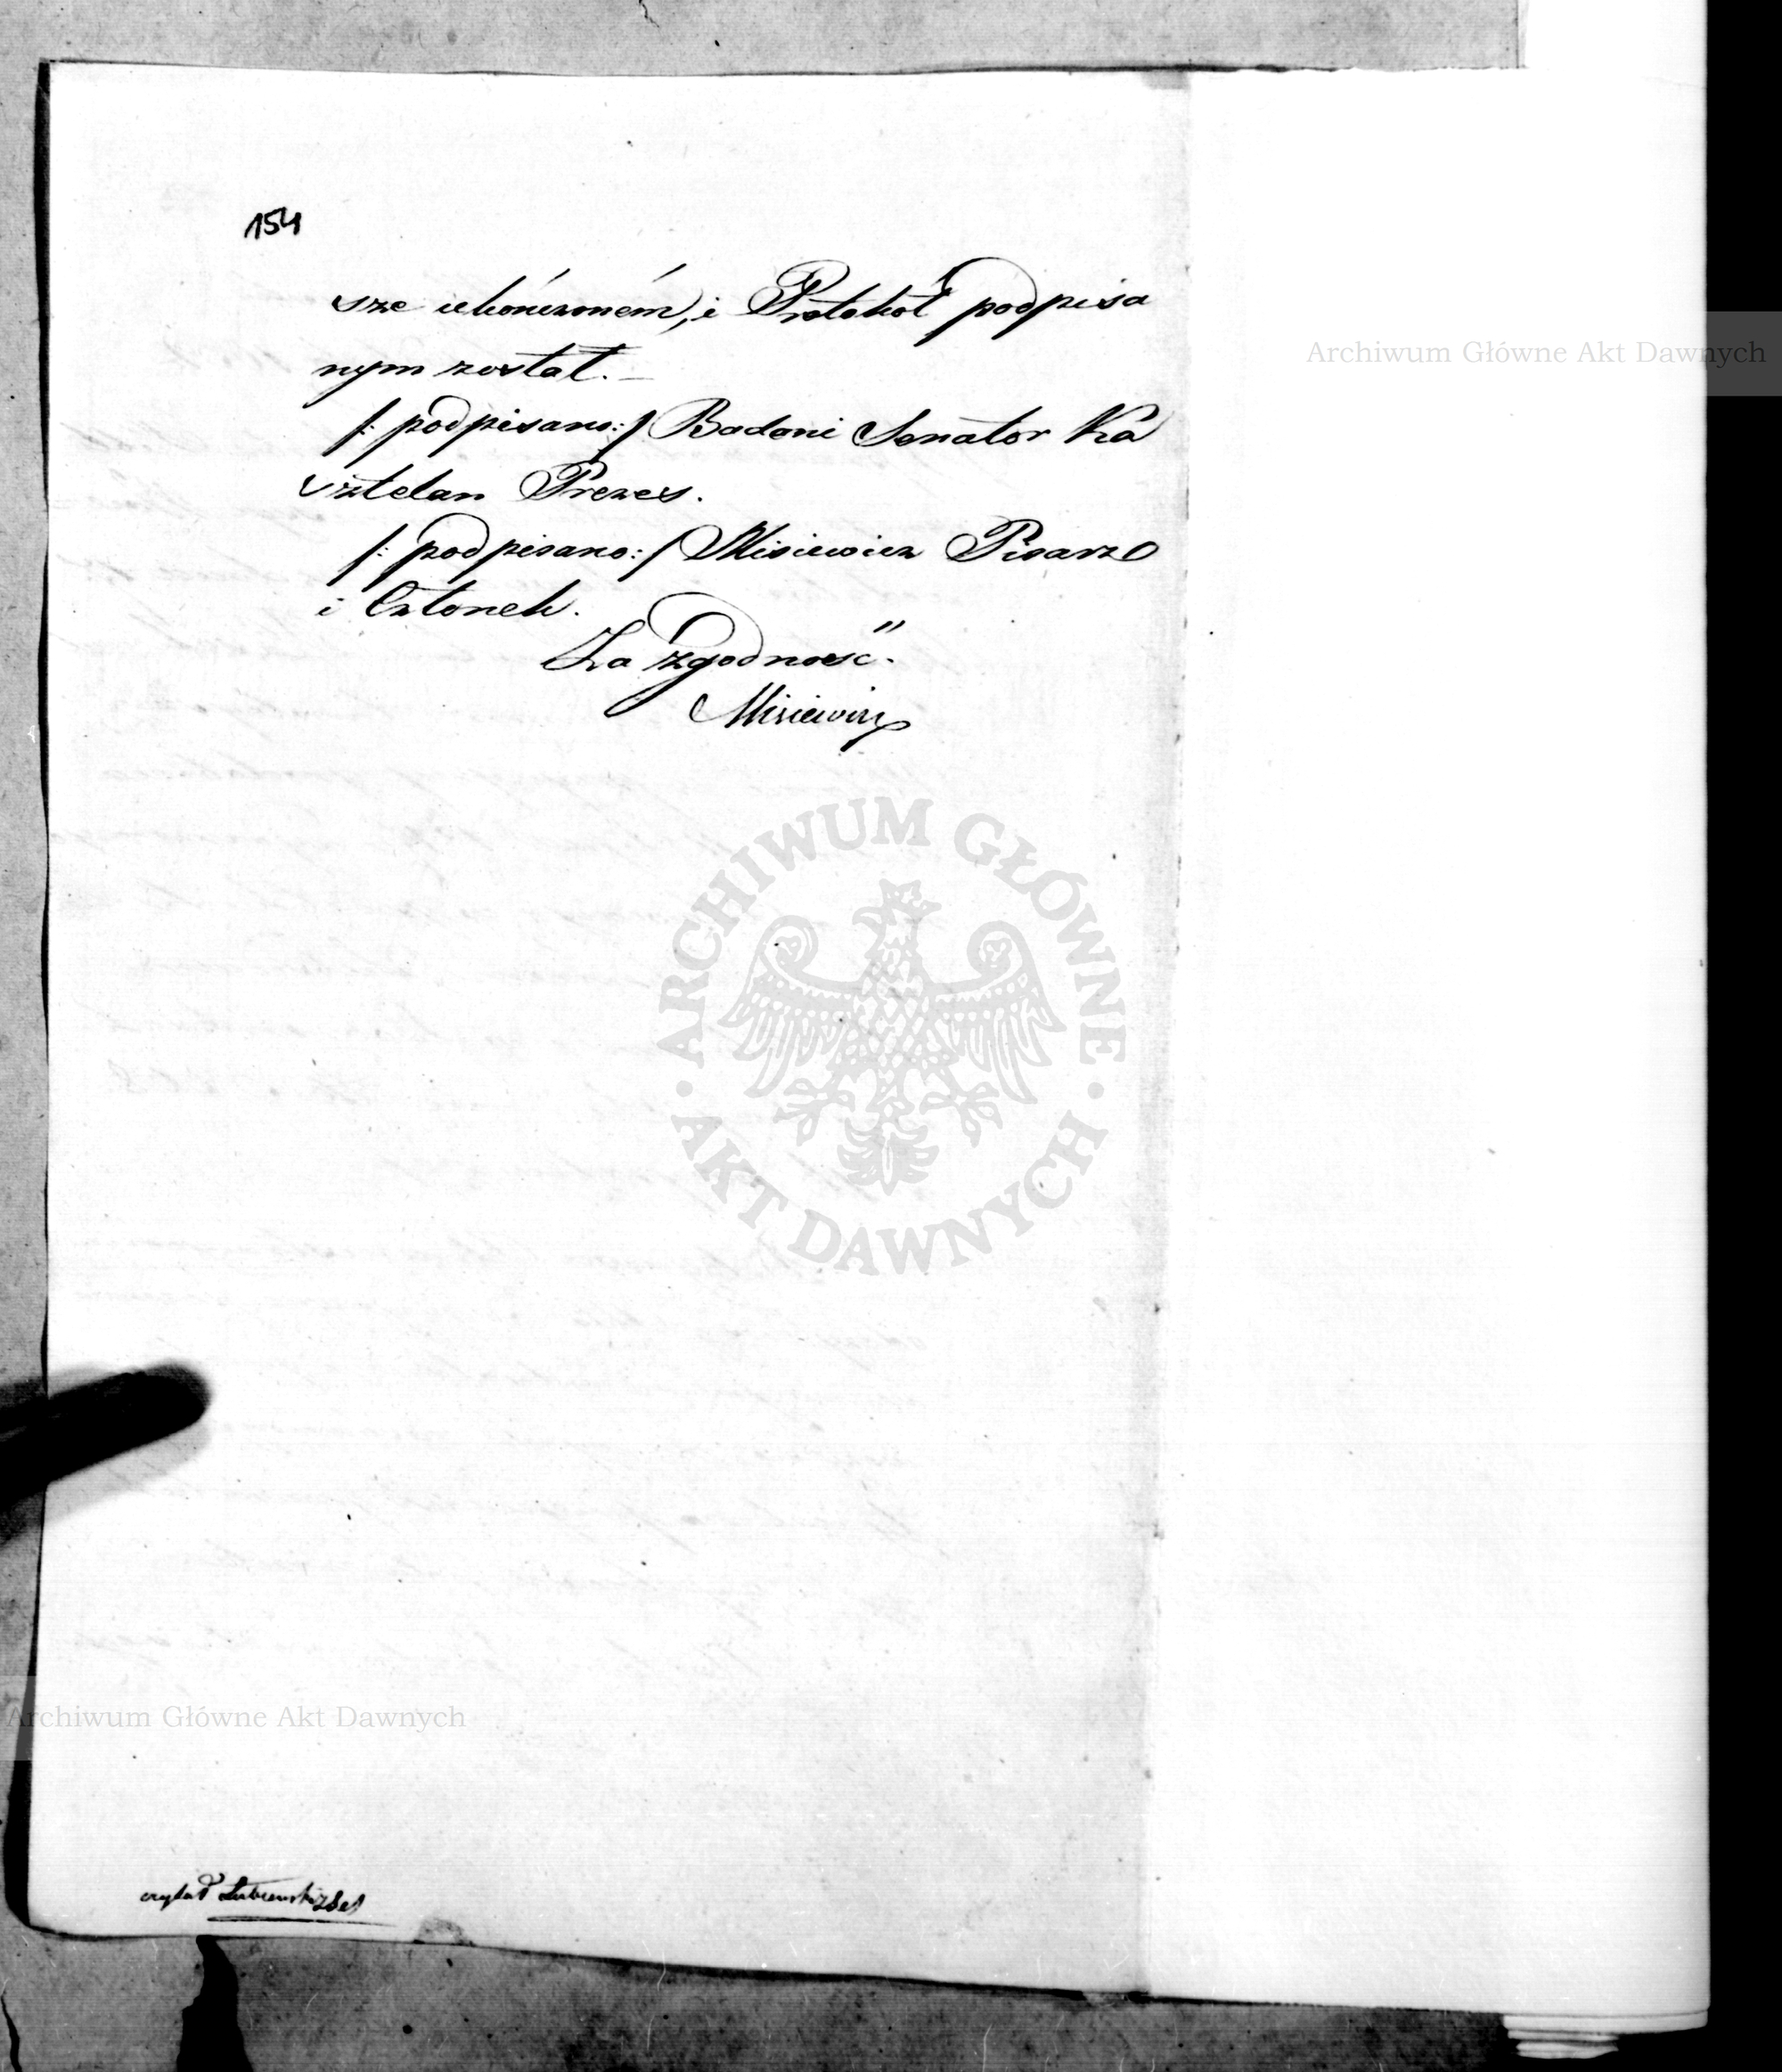 154
sze ukończoném, i Protokół podpisa
nym został. —
/: podpisano:/ Badeni Senator Ka
sztelan Prezes.
/: podpisano:/ Misiewicz Pisarz
i Członek.
Za zgodność.
Misiewicz
czytał
Archiwum Główne Akt Dawnych
ARCHIWUM GŁÓWNE
AKT DAWNYCH
Archiwum Główne Akt Dawnych